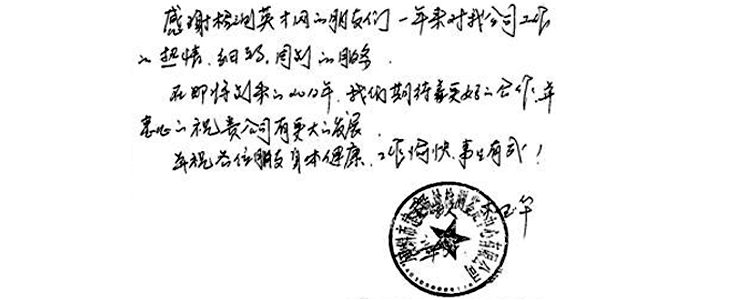 感谢检测英才网的朋友们一年来对我公司工作
的热情、细致、周到的服务。
在即将到来的2012年,我们期待着更好的合作,并
衷心的祝贵公司有更大的发展。
并祝各位朋友身体健康、工作愉快、事业有成!